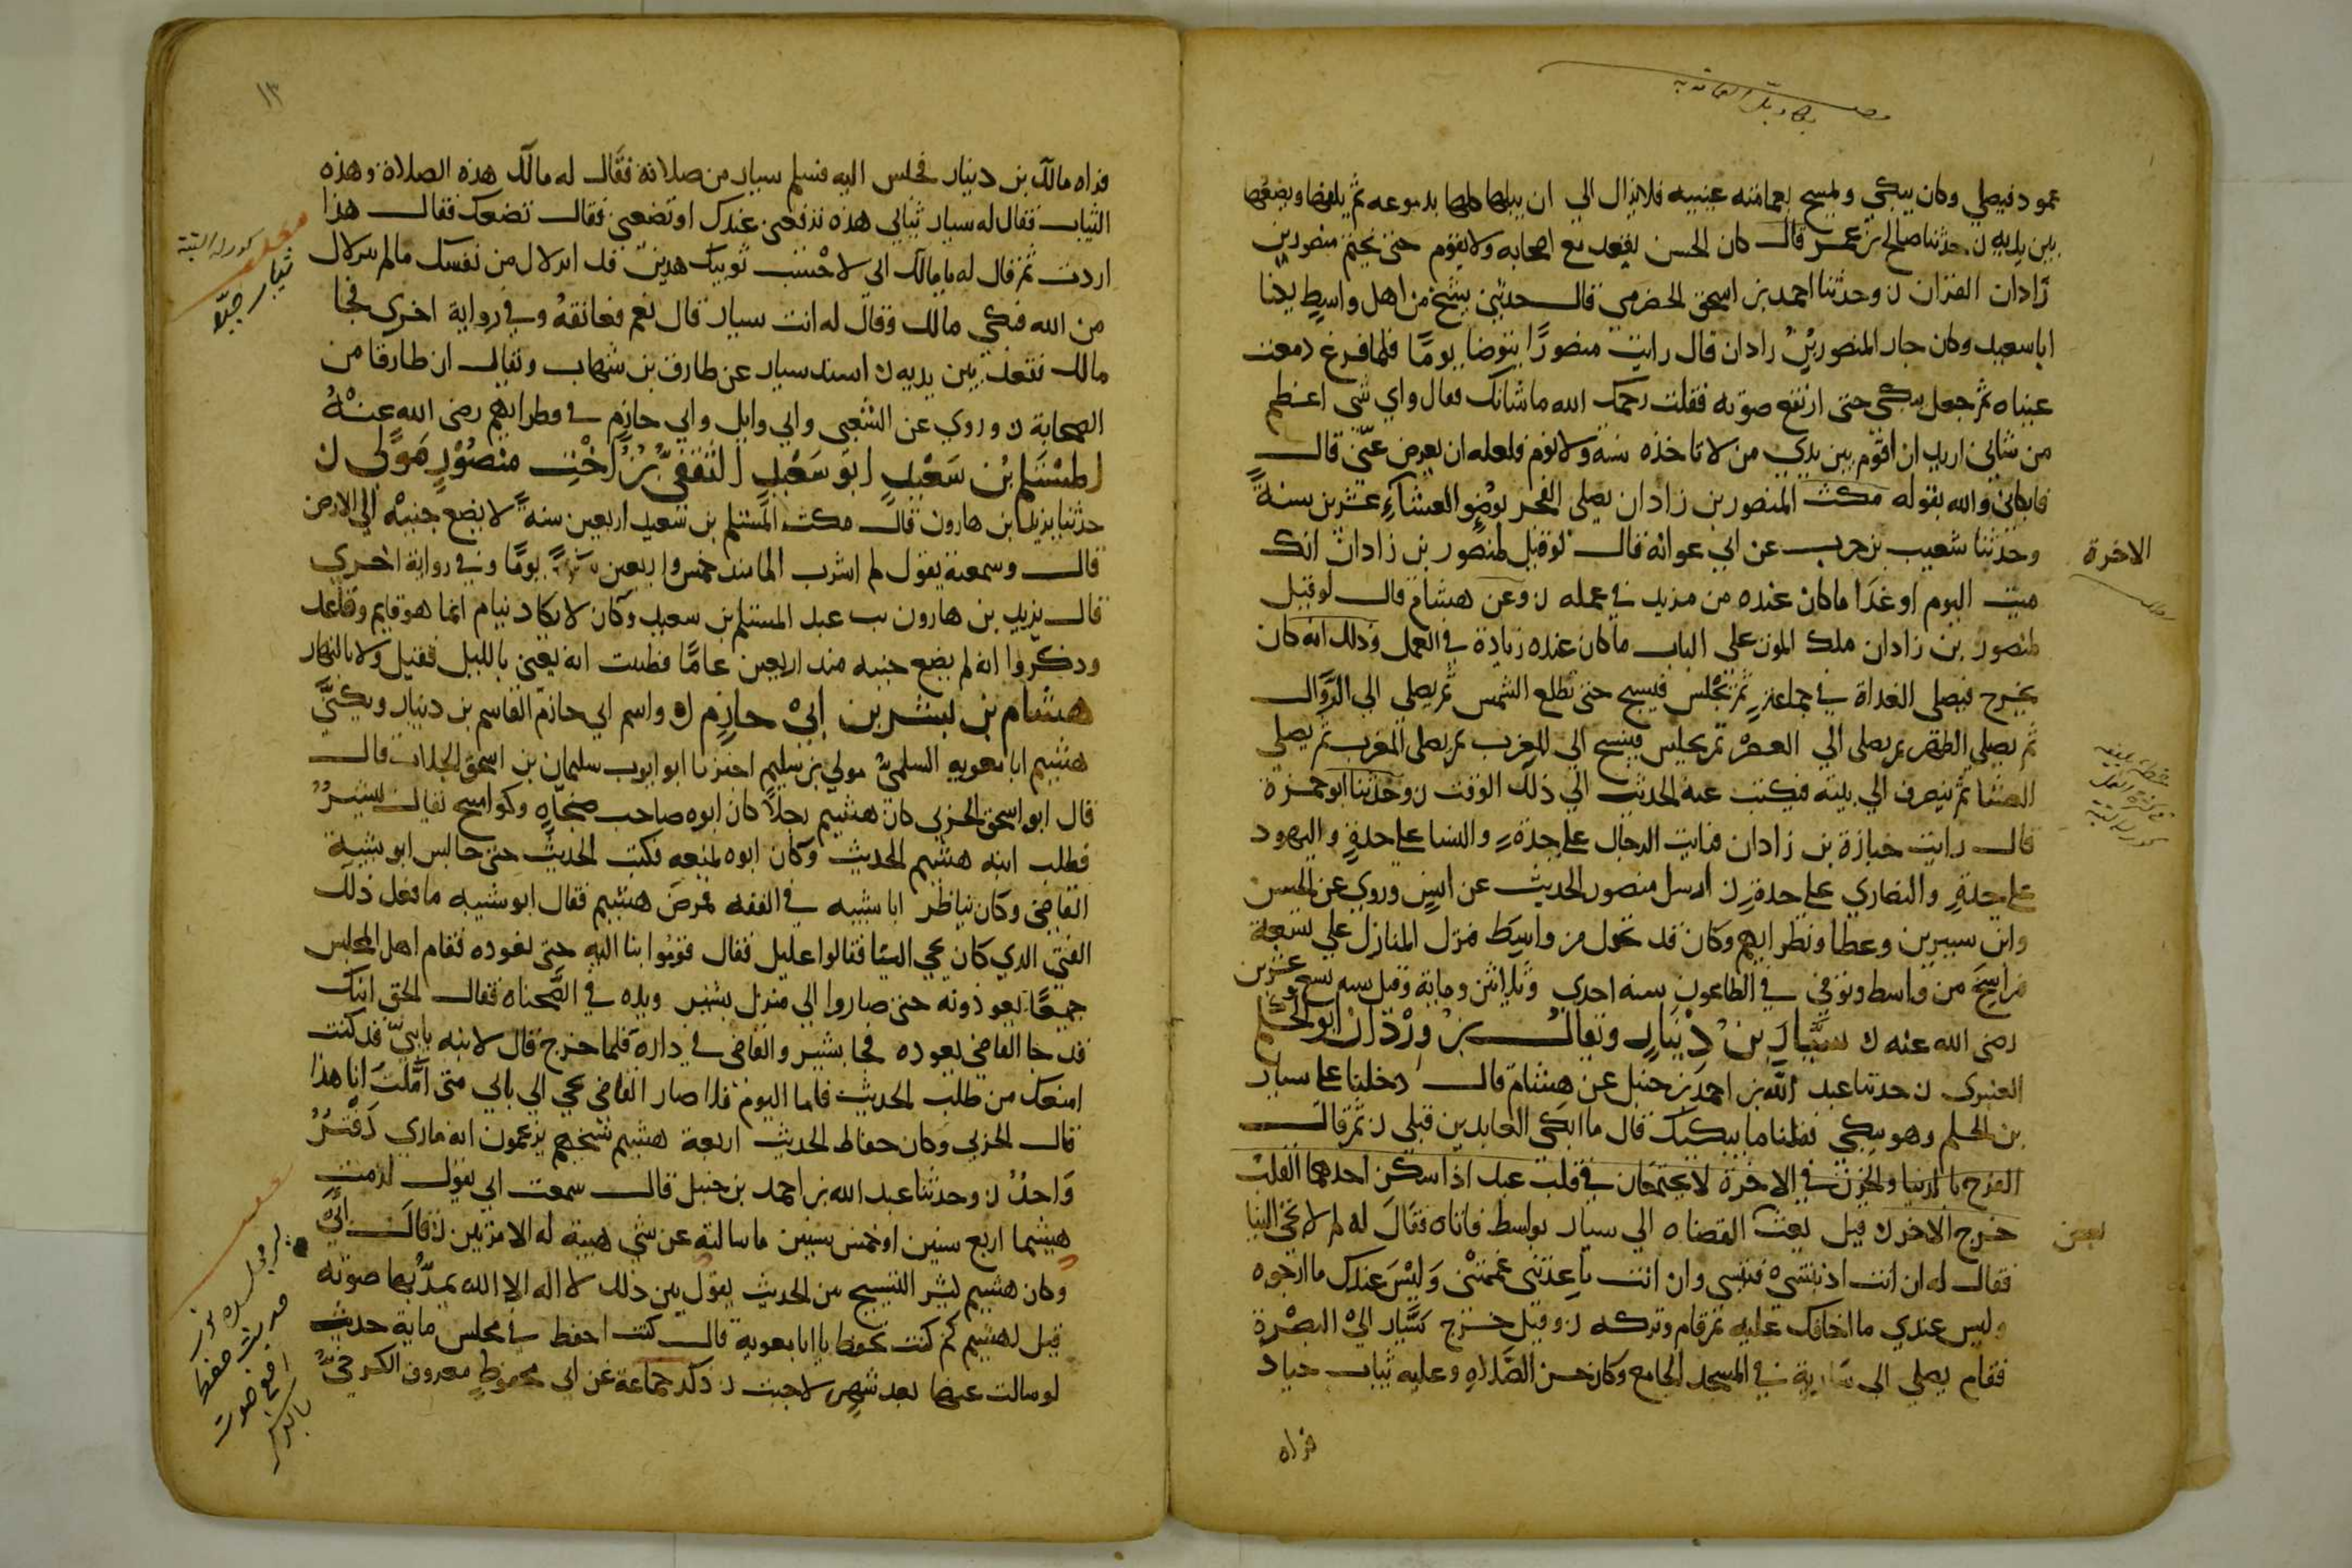 عمود فيصلي وكان يبكي ويمسح بعمامته عينيه فلا يزال الي ان يبلها كلها بدموعه ثم يلفها ويضعها
بين يديه ن حدثنا صالح بن عمر قال كان الحسن يقعد مع اصحابه ولا يقوم حتى يختم منصور بن
زادان القران ن وحدثنا احمد بن اسحق الحضرمي قال حدثني شيخ من اهل واسط يكنا
ابا سعيد وكان جار المنصور بن زادان قال رايت منصورًا يتوضا يومًا فلما فرغ دمعت
عيناه ثم جعل يبكي حتى ارتفع صوته فقلت رحمك الله ما شانك فقال واي شي اعظم
من شاني اريد ان اقوم بين يدي من لا تاخذه سنة ولا نوم فلعله ان يعرض عنّي قال
فابكاني والله بقوله مكث المنصور بن زادان يصلي الفجر بوضو العشاء عشرين سنة
وحدثنا شعيب بن حرب عن ابي عوانه قال لو قيل لمنصور بن زادان انك
الاخرة
ميت اليوم او غدًا ما كان عنده من مزيد في عمله ن وعن هشام قال لو قيل
لمنصور بن زادان ملك الموت علي الباب ما كان عنده زيادة في العمل وذلك انه كان
يخرج فيصلي الغداة في جماعة ثم يجلس فيسبح حتى تطلع الشمس ثم يصلي الي الزوال
ثم يصلي الظهر ثم يصلي الي العصر ثم يجلس فيسبح الي المغرب ثم يصلي المغرب ثم يصلي
العشا ثم ينصرف الي بيته فيكتب عنه الحديث الي ذلك الوقت ن وحدثنا ابو حمزة
قال رايت جنازة بن زادان فرايت الرجال علي حدة والنسا علي حدة واليهود
علي حدة والنصاري علي حدة ن ارسل منصور الحديث عن انس وروي عن الحسن
وابن سيرين وعطا ونظرايهم وكان قد تحول من واسط فنزل المنازل علي تسعة
فراسخ من واسط وتوفي في الطاعون سنه احدي وثلاثين وماية وقيل سنه تسع وعشرين
رضي الله عنه ن سيار بن دينار ويقال بن وردان ابو الحكم
العنبري ن حدثنا عبد الله بن احمد بن حنبل عن هشام قال دخلنا علي سيار
بن الحكم وهو يبكي فقلنا ما يبكيك قال ما ابكي العابدين قبلي ن ثم قال
الفرح بالدنيا والحزن في الاخرة لا يجتمعان في قلب عبد اذا سكن احدهما القلب
خرج الاخر ن قيل بعث القضاه الي سيار بواسط فاتاه فقال له لم لا تجي الينا
بعض
فقال له ان انت ادنيتني فتنتني وان انت باعدتني غممتني وليس عندك ما ارجوه
وليس عندي ما اخافك عليه ثم قام وتركه ن وقيل خرج سيار الي البصرة
فقام يصلي الي سارية في المسجد الجامع وكان حسن الصلاه وعليه ثياب جياد
فراه
١٣
فراه مالك بن دينار فجلس اليه فسلم سيار من صلاته فقال له مالك هذه الصلاة وهذه
الثياب فقال له سيار ثيابي هذه ترفعني عندك او تضعني فقال تضعك فقال هذا
اردت ثم قال له يا مالك اني لاحسب ثوبيك هذين قد انزلاك من نفسك ما لم ينزلاك
من الله فبكي مالك وقال له انت سيار قال نعم فعانقه وفي رواية اخري فجا
مالك فقعد بين يديه ن اسند سيار عن طارق بن شهاب ويقال ان طارقا من
الصحابة ن وروي عن الشعبي وابي وايل وابي حازم في نظرايهم رضى الله عنه
المستلم بن سعيد ابو سعيد الثقفي بن اخت منصور مولي ن
حدثنا يزيد بن هارون قال مكث المستلم بن سعيد اربعين سنة لا يضع جنبه الي الارض
قال وسمعته يقول لم اشرب الما منذ خمس واربعين يومًا وفي رواية اخري
قال يزيد بن هارون عبد المستلم بن سعيد وكان لا يكاد ينام انما هو قايم وقاعد
وذكروا انه لم يضع جنبه منذ اربعين عامًا فظننت انه يعني بالليل فقيل ولا بالنهار
هشام بن بشر بن ابي حازم ن واسم ابي حازم القاسم بن دينار ويكني
هشيم ابا معويه السلمي مولي بن سليم اخبرنا ابو ايوب سليمان بن اسحق الجلاب قال
قال ابو اسحق الحزبي كان هشيم رجلاً كان ابوه صاحب صحناه وكوامسح يقال بشير
فطلب ابنه هشيم الحديث وكان ابوه يمنعه فكتب الحديث حتى جالس ابو شيبة
القاضي وكان يناظر ابا شيبه في الفقه فمرض هشيم فقال ابو شيبه ما فعل ذلك
الفتي الذي كان يجي الينا فقالوا عليل فقال قوموا بنا اليه حتى نعوده فقام اهل المجلس
جميعًا يعوذونه حتى صاروا الي منزل بشير ويده في الصحناه فقال الحق ابنك
قد جا القاضي يعوده فجا بشير والقاضي في داره فلما خرج قال لابنه يا بني قد كنت
امنعك من طلب الحديث فاما اليوم فلا صار القاضي يجي الي بابي متى امّلت انا هذا
قال الحزبي وكان حفاظ الحديث اربعة هشيم شيخهم يزعمون انه ما روي دفتر
واحد ن وحدثنا عبد الله بن احمد بن حنبل قال سمعت ابي يقول لزمت
هشيما اربع سنين او خمس سنين ما سالته عن شي هيبة له الا مرتين ن قال ابي
وكان هشيم كثير التسبيح بين الحديث يقول بين ذلك لا اله الا الله يمد بها صوته
قيل لهشيم كم كنت تحفظ يا ابا معوية قال كنت احفظ في مجلس ماية حديث
لو سالت عنها بعد شهر لاجبت ن ذكر جماعة عن ابي محفوظ معروف الكرخي